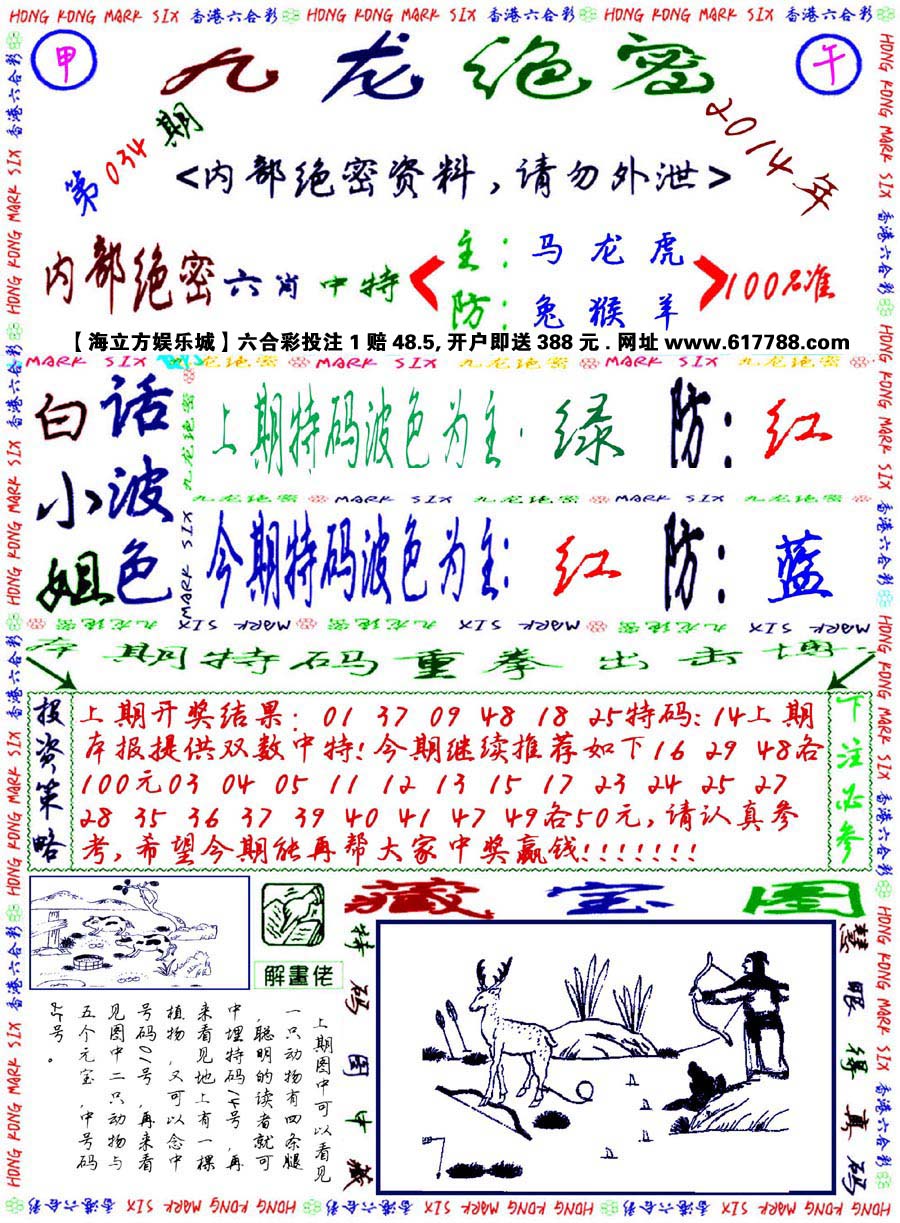 HONG KONG MARK SIX 香港六合彩 HONG KONG MARK SIX 香港六合彩 HONG KONG MARK SIX 香港六合彩 HONG KONG MARK SIX 香港六合彩
甲 九龙绝密 午
第034期
2014年
<内部绝密资料,请勿外泄>
内部绝密六肖中特
主:马龙虎
防:兔猴羊
100%准
【海立方娱乐城】六合彩投注1赔48.5,开户即送388元.网址www.617788.com
MARK SIX 九龙绝密 MARK SIX 九龙绝密 MARK SIX 九龙绝密
白小姐
话波色
上期特码波色为主:绿 防:红
九龙绝密 MARK SIX 九龙绝密 MARK SIX 九龙绝密 MARK SIX 九龙绝密
今期特码波色为主:红 防:蓝
九龙绝密 MARK SIX 九龙绝密 MARK SIX 九龙绝密 MARK SIX
本期特码重拳出击博
投资策略
上期开奖结果:01 37 09 48 18 25特码:14上期
本报提供双数中特!今期继续推荐如下16 29 48各
100元03 04 05 11 12 13 15 17 23 24 25 27
28 35 36 37 39 40 41 47 49各50元,请认真参
考,希望今期能再帮大家中奖赢钱!!!!!!!
下注必参
藏宝图
解畫佬
特码图中藏
慧眼得真码
上期图中可以看见
一只动物有四条腿
,聪明的读者就可
中埋特码14号,再
来看见地上有一棵
植物,又可以念中
号码01号,再来看
见图中二只动物与
五个元宝,中号码
25号。
HONG KONG MARK SIX 香港六合彩 HONG KONG MARK SIX 香港六合彩 HONG KONG MARK SIX 香港六合彩 HONG KONG MARK SIX 香港六合彩